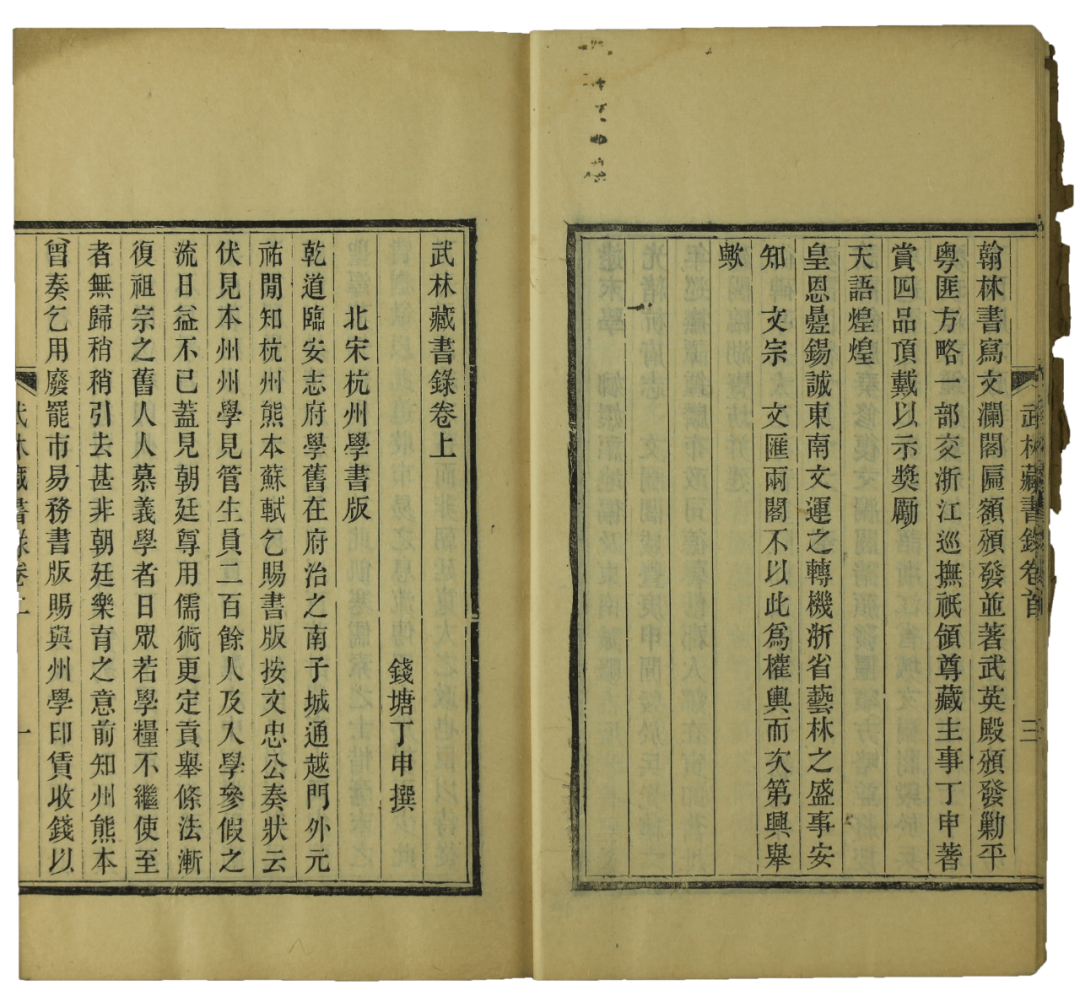 武林藏書錄卷首
三
翰林書寫文瀾閣匾額頒發並著武英殿頒發勦平
粵匪方略一部交浙江巡撫祇領尊藏主事丁申著
賞四品頂戴以示獎勵
天語煌煌
皇恩疊錫誠東南文運之轉機浙省藝林之盛事安
知　文宗　文匯兩閣不以此爲權輿而次第興舉
歟
武林藏書錄卷上
錢塘丁申撰
北宋杭州學書版
乾道臨安志府學舊在府治之南子城通越門外元
祐閒知杭州熊本蘇軾乞賜書版按文忠公奏狀云
伏見本州州學見管生員二百餘人及入學參假之
流日益不已蓋見朝廷尊用儒術更定貢舉條法漸
復祖宗之舊人人慕義學者日眾若學糧不繼使至
者無歸稍稍引去甚非朝廷樂育之意前知州熊本
曾奏乞用廢罷市易務書版賜與州學印賃收錢以
武林藏書錄卷上
一